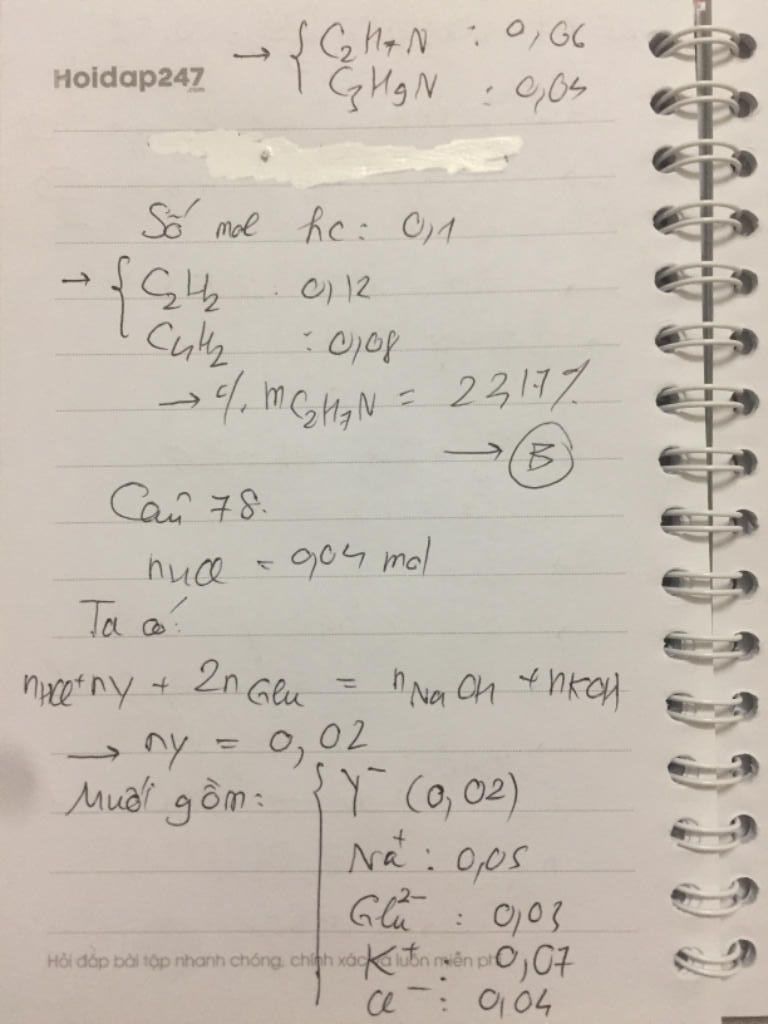 → { C₂H₇N : 0,06
Hoidap247.com
C₃H₉N : 0,04
Số mol hc: 0,1
→ { C₂H₂ : 0,12
C₄H₂ : 0,08
→ %mC₂H₇N = 23,17%
→ B
Câu 78.
nHCl = 0,04 mol
Ta có:
nHCl + nY + 2nGlu = nNaOH + nKOH
→ nY = 0,02
Muối gồm: { Y⁻ (0,02)
Na⁺ : 0,05
Glu²⁻ : 0,03
Hỏi đáp bài tập nhanh chóng, chính xác và luôn miễn phí
K⁺ : 0,07
Cl⁻ : 0,04